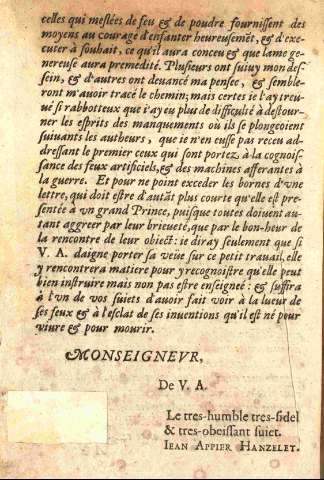 celles qui meslées de feu & de poudre fournissent des
moyens au courage d'enfanter heureusemēt, & d'exe-
cuter à souhait, ce qu'il aura conceu & que lame ge-
nereuse aura premedité. Plusieurs ont suiuy mon des-
sein, & d'autres ont deuancé ma pensee, & semble-
ront m'auoir tracé le chemin; mais certes ie l'ay treu-
ué si rabbotteux que i'ay eu plus de difficulté à destour-
ner les esprits des manquements où ils se plongeoient
suiuants les autheurs, que ie n'en eusse pas receu ad-
dressant le premier ceux qui sont portez à la cognois-
sance des feux artificiels, & des machines afferantes à
la guerre. Et pour ne point exceder les bornes d'vne
lettre, qui doit estre d'autāt plus courte qu'elle est pre-
sentée à vn grand Prince, puisque toutes doiuent au-
tant aggreer par leur brieueté, que par le bon-heur de
la rencontre de leur obiect: ie diray seulement que si
V. A. daigne porter sa veüe sur ce petit trauail, elle
y rencontrera matiere pour y recognoistre qu'elle peut
bien instruire mais non pas estre enseignee: & suffira
à l'vn de vos suiets d'auoir fait voir à la lueur de
ses feux & à l'esclat de ses inventions qu'il est né pour
viure & pour mourir.
MONSEIGNEVR,
De V. A.
Le tres-humble tres-fidel
& tres-obeissant suiet.
IEAN APPIER HANZELET.